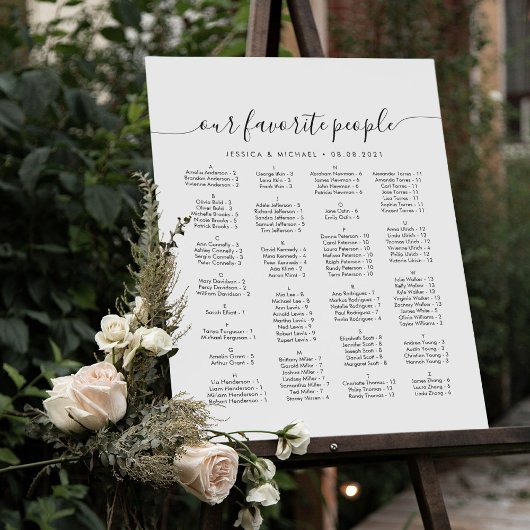 our favorite people
JESSICA & MICHAEL • 08.08.2021
A
Amelia Anderson - 2
Brandon Anderson - 2
Vivienne Anderson - 2
B
Olivia Bold - 5
Oliver Bold - 5
Michelle Brooks - 5
Nicole Brooks - 5
Patrick Brooks - 5
C
Ann Connelly - 3
Ashley Connelly - 3
Sergio Connelly - 3
Peter Connelly - 3
D
Mary Davidson - 2
Percy Davidson - 2
William Davidson - 2
E
Sarah Elliott - 1
F
Tanya Ferguson - 1
Michael Ferguson - 1
G
Amelia Grant - 5
Arthur Grant - 5
H
Lia Henderson - 1
Liam Henderson - 1
Miriam Henderson - 1
Robert Henderson - 1
I
George Irwin - 4
Lana Irwin - 4
Frank Irwin - 4
J
Adele Jefferson - 5
Richard Jefferson - 5
Sandra Jefferson - 5
Samuel Jefferson - 5
Tim Jefferson - 5
K
David Kennedy - 4
Mina Kennedy - 4
Peter Kennedy - 4
Ada Klimt - 2
Aaron Klimt - 2
L
Mia Lee - 8
Michael Lee - 8
Ann Lewis - 9
Arnold Lewis - 9
Martha Lewis - 9
Ned Lewis - 9
Robert Lewis - 9
Rupert Lewis - 9
M
Brittany Miller - 7
Garold Miller - 7
Justin Miller - 7
Lindsay Miller - 7
Samantha Miller - 7
Ted Miller - 7
Stacey Nissen - 4
N
Abraham Newman - 6
James Newman - 6
John Newman - 6
Patricia Newman - 6
O
Jane Ostin - 6
Emily Oatis - 6
P
Donna Peterson - 10
Carol Peterson - 10
Laura Peterson - 10
Melissa Peterson - 10
Ralph Peterson - 10
Randy Peterson - 10
Terri Peterson - 10
R
Ana Rodrigues - 7
Markus Rodrigues - 7
Natalia Rodrigues - 7
Paul Rodrigues - 7
Paola Rodrigues - 4
S
Elizabeth Scott - 8
Jennifer Scott - 8
Jeremiah Scott - 8
Joseph Scott - 8
Daniel Scott - 8
Samuel Scott - 8
T
Charlotte Thomas - 12
Philip Thomas - 12
Randy Thomas - 12
Alexander Torres - 11
Amanda Torres - 11
Carl Torres - 11
Jose Torres - 11
Lisa Torres - 11
Sophia Torres - 11
Vincent Torres - 11
U
Anna Ulrich - 9
Linda Ulrich - 9
Thomas Ulrich - 9
Vivienne Ulrich - 9
Philip Ulrich - 9
Victoria Ulrich - 9
W
Julie Walker - 13
Kelly Walker - 13
Kyle Walker - 13
Virginia Walker - 13
Zachary Walker - 13
James White - 5
Olivia Williams - 4
Taylor Williams - 4
Y
Andrew Young - 3
Austin Young - 3
Christian Young - 3
Hannah Young - 3
Z
James Zhang - 6
Laura Zhang - 6
Linda Zhang - 6